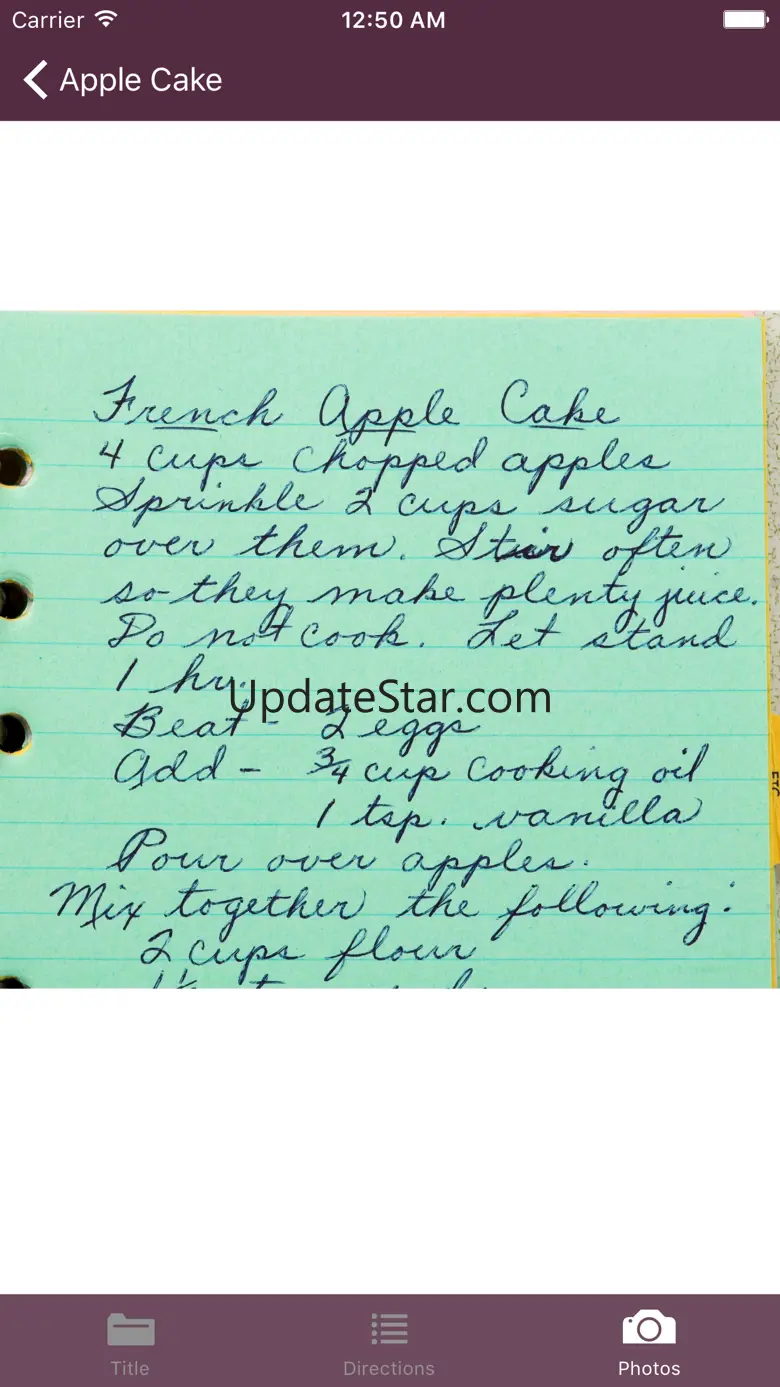 Carrier 12:50 AM
Apple Cake
French Apple Cake
4 cups chopped apples
Sprinkle 2 cups sugar
over them. Stir often
so they make plenty juice.
Do not cook. Let stand
1 hr.
UpdateStar.com
Beat - 2 eggs
Add - 3/4 cup cooking oil
1 tsp. vanilla
Pour over apples.
Mix together the following:
2 cups flour
Title Directions Photos